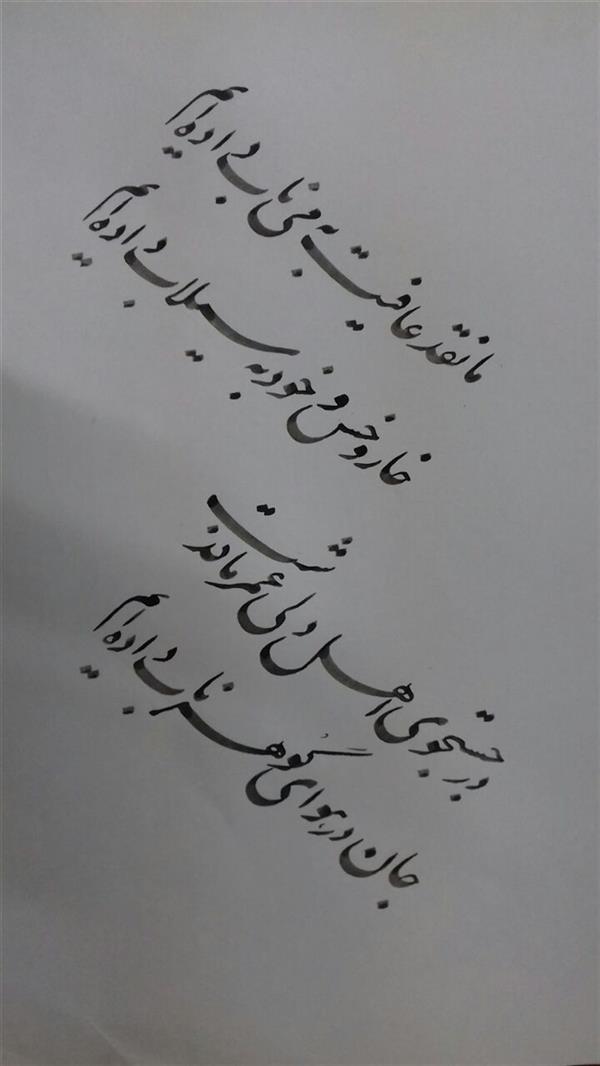 ما نقد عافیت به می ناب داده ایم
خار و خس وجود به سیلاب داده ایم
در جستجوی اهل دلی عمر ما گذشت
جان در هوای گوهر ناب داده ایم